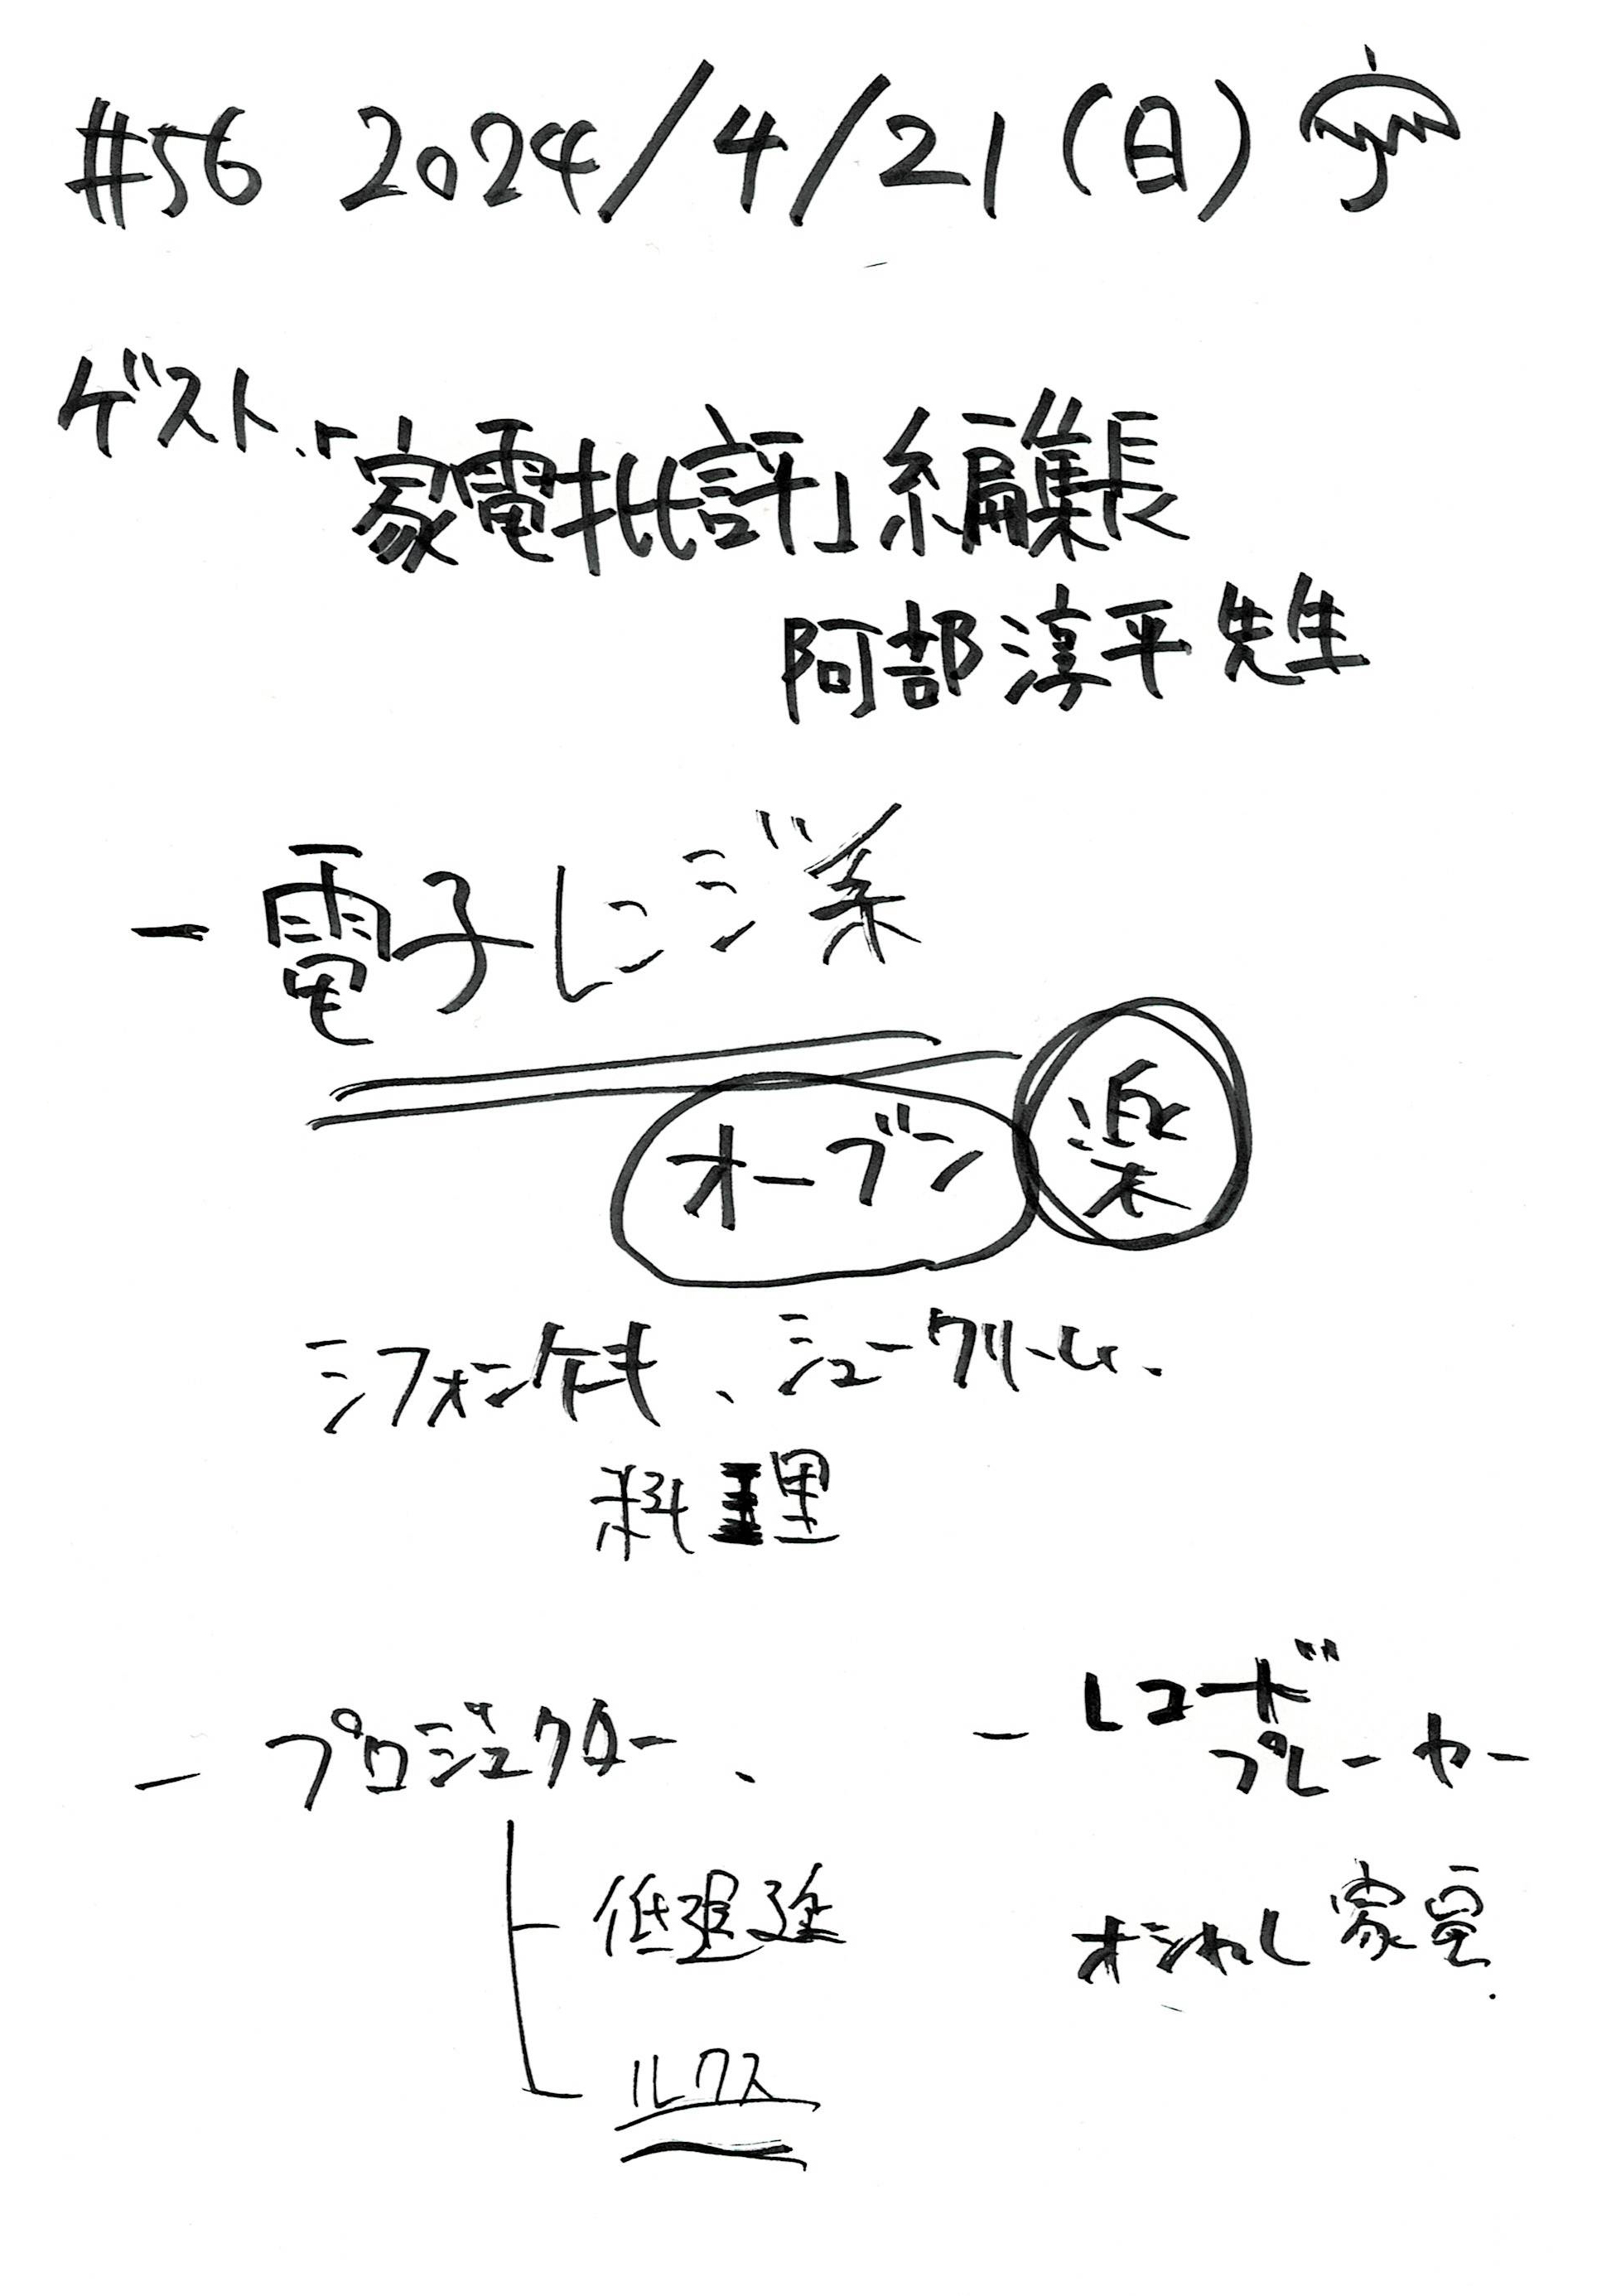 #56 2024/4/21(日)
ゲスト、「家電批評」編集長
阿部淳平先生
- 電子レンジ系
オーブン 楽
シフォンケーキ、シュークリーム、
料理
- プロジェクター、
低遅延
ルクス
- レコード
プレーヤー
オシャレ家電.